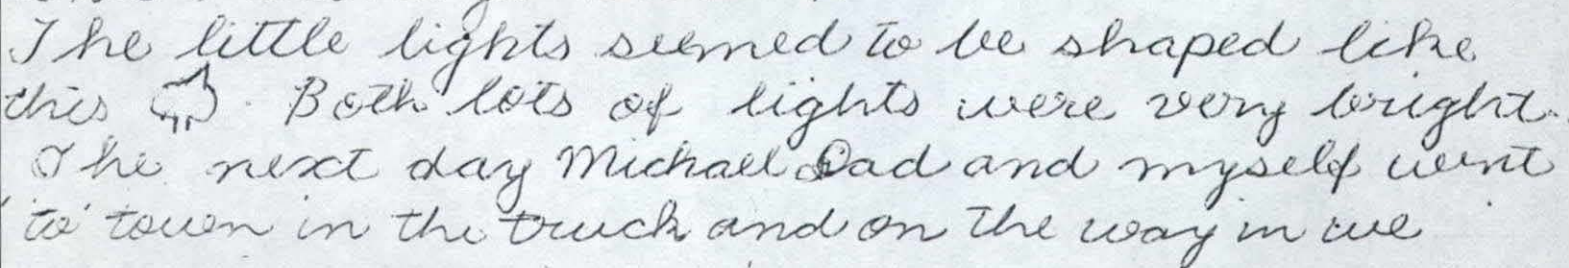 The little lights seemed to be shaped like
this . Both lots of lights were very bright.
The next day Michael Dad and myself went
to town in the truck and on the way in we